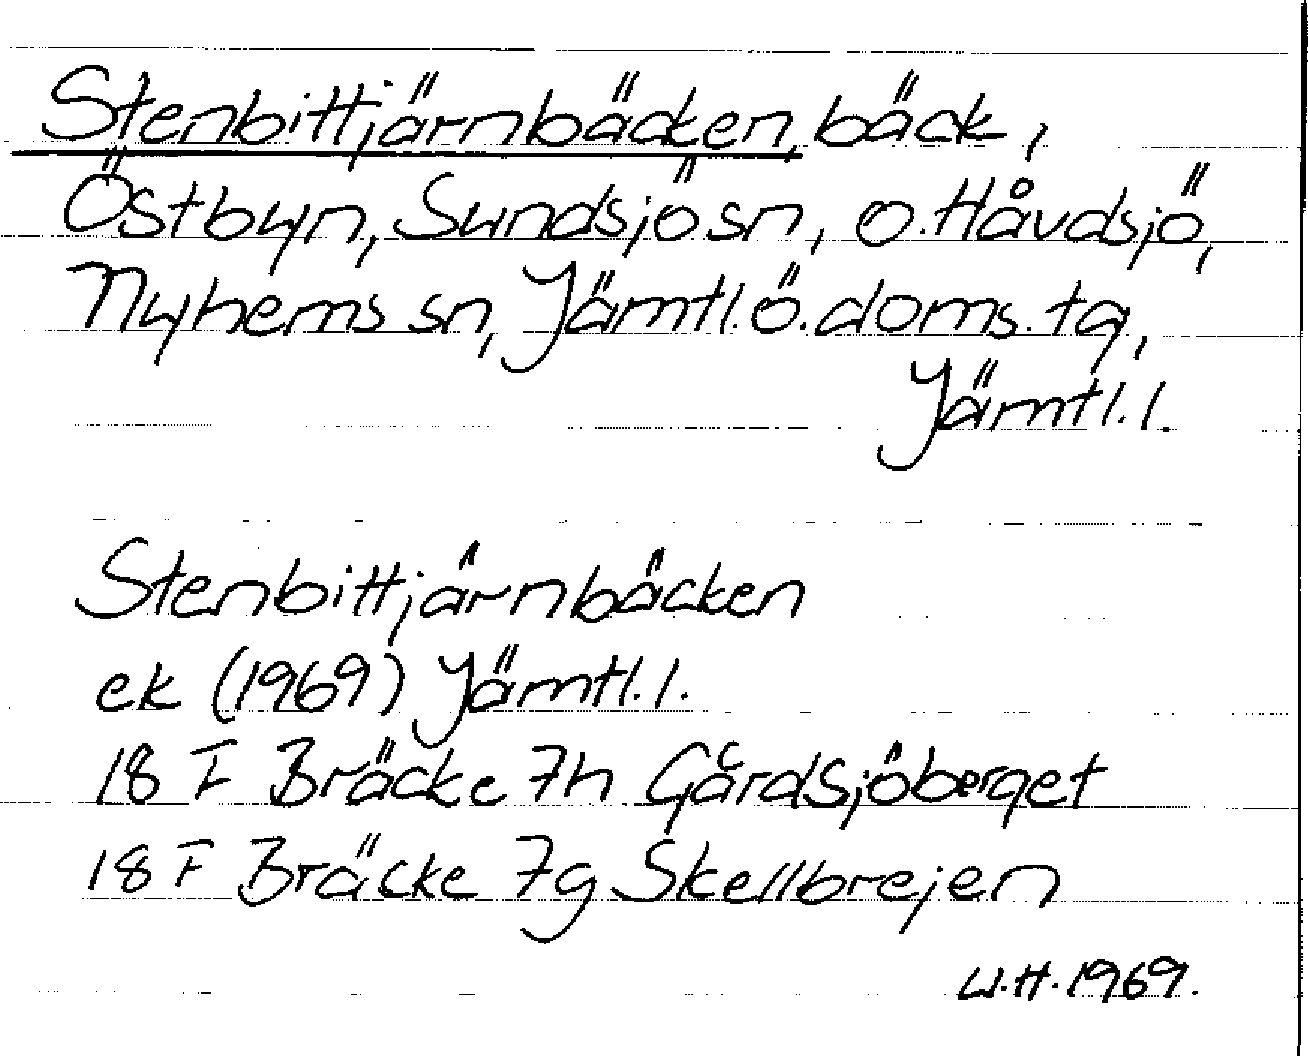 Stenbittjärnbäcken, bäck,
Östbyn, Sundsjö sn, o. Håvdsjö,
Nyhems sn, Jämtl. ö. doms. tg,
Jämtl. l.
Stenbittjärnbäcken
ek (1969) Jämtl. l.
18 F Bräcke 7h Gårdsjöberget
18 F Bräcke 7g Skellbrejen
W.H. 1969.